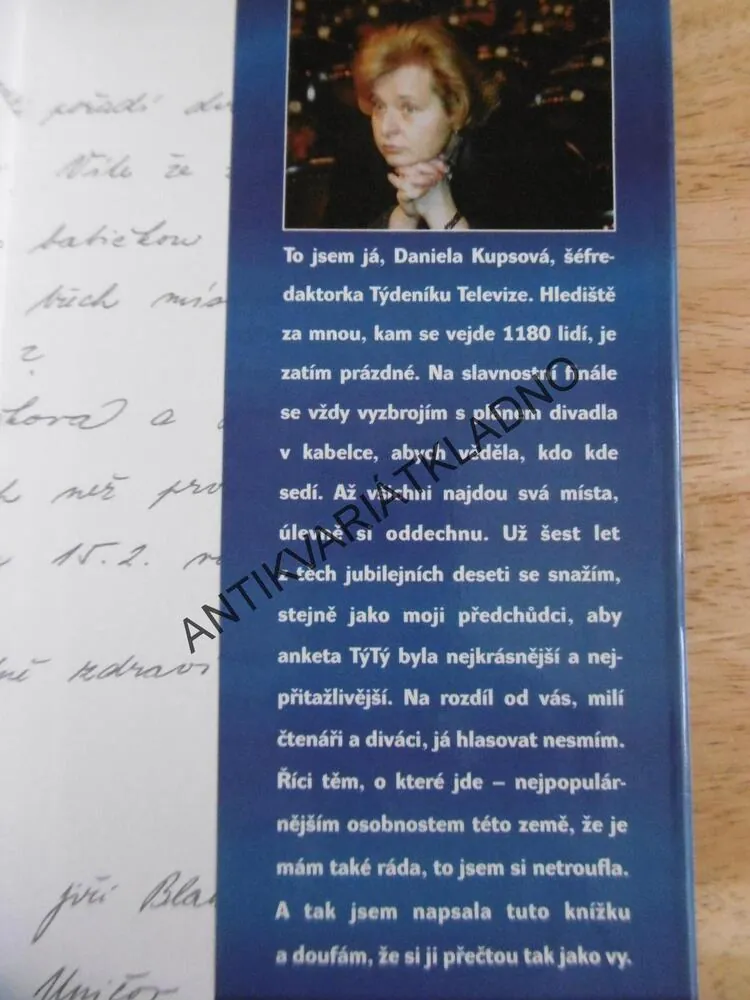 pořadí
Víte že
babičkou
všech
?
a
než pro
15.2.
zdraví
Jiří
Uničov
To jsem já, Daniela Kupsová, šéfre-
daktorka Týdeníku Televize. Hlediště
za mnou, kam se vejde 1180 lidí, je
zatím prázdné. Na slavnostní finále
se vždy vyzbrojím s plánem divadla
v kabelce, abych věděla, kdo kde
sedí. Až všichni najdou svá místa,
úlevně si oddechnu. Už šest let
z těch jubilejních deseti se snažím,
stejně jako moji předchůdci, aby
anketa TýTý byla nejkrásnější a nej-
přitažlivější. Na rozdíl od vás, milí
čtenáři a diváci, já hlasovat nesmím.
Říci těm, o které jde – nejpopulár-
nějším osobnostem této země, že je
mám také ráda, to jsem si netroufla.
A tak jsem napsala tuto knížku
a doufám, že si ji přečtou tak jako vy.
ANTIKVARIÁTKLADNO